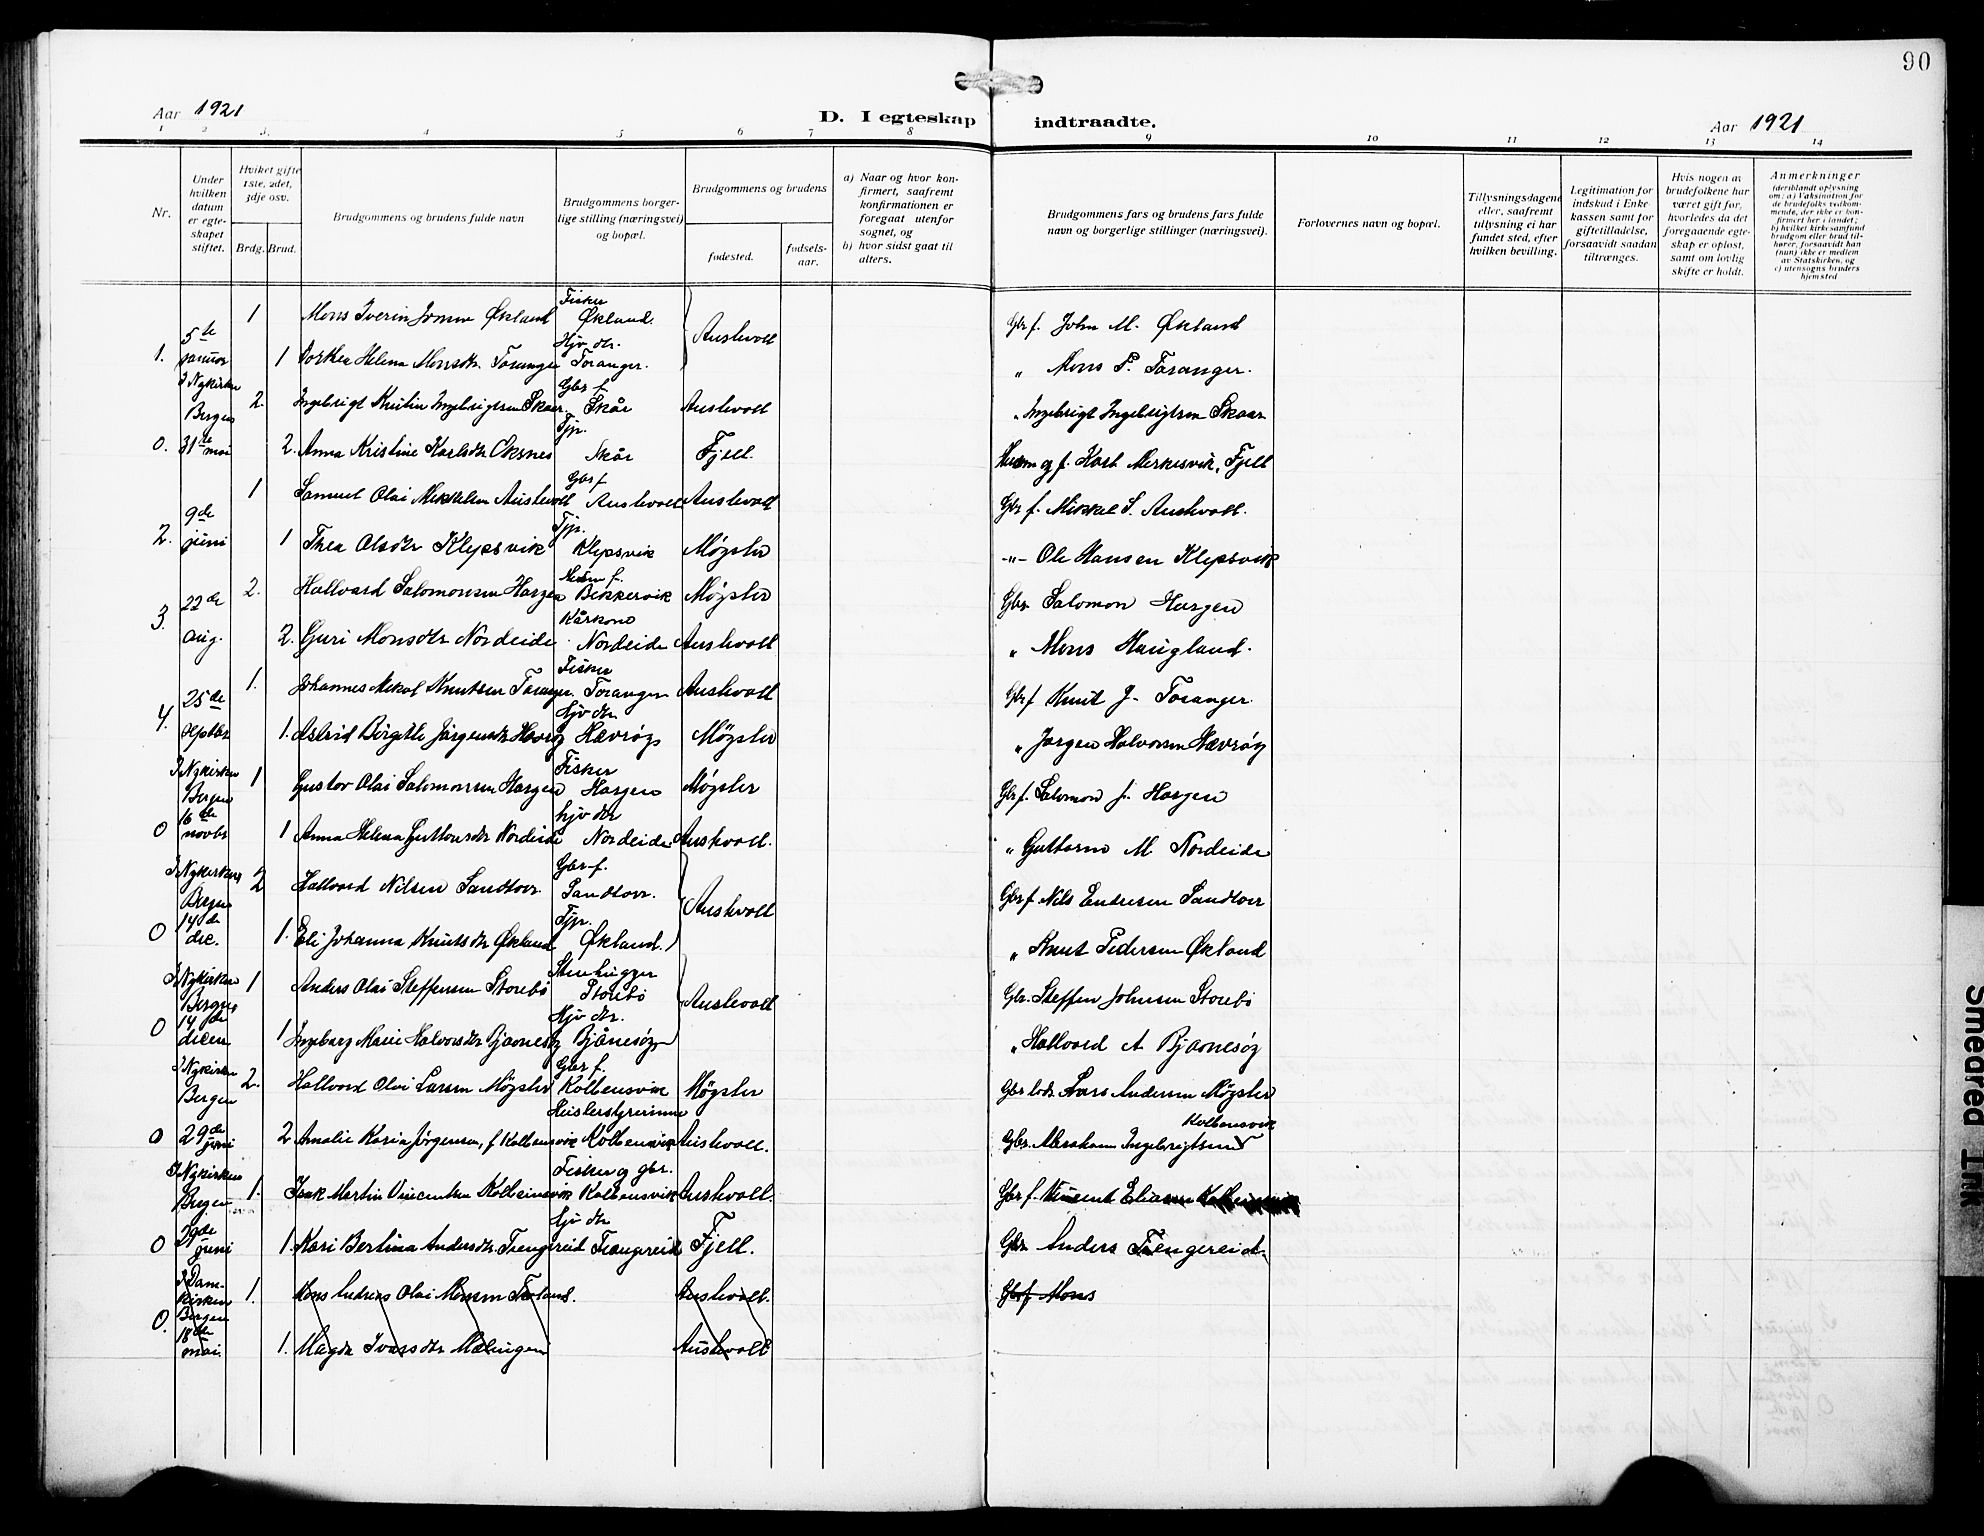 90
Aar 1921
D. I egteskap indtraadte.
Aar 1921
1 2 3. 4 5 6 7 8 9 10 11 12 13 14
Nr.
Under hvilken datum er egte- skapet stiftet.
Hviket gifte 1ste, 2det, 3dje osv.
Brdg. Brud.
Brudgommens og brudens fulde navn
Brudgommens borger- lige stilling (næringsvei) og bopæl.
Brudgommens og brudens
fødested.
fødsels- aar.
a) Naar og hvor kon- firmert, saafremt konfirmationen er foregaat utenfor sognet, og
b) hvor sidst gaat til alters.
Brudgommens fars og brudens fars fulde navn og borgerlige stillinger (næringsvei).
Forlovernes navn og bopæl.
Tillysningsdagene eller, saafremt tillysning ei har fundet sted, efter hvilken bevilling.
Legitimation for indskud i Enke- kassen samt for giftetilladelse, forsaavidt saadan tiltrænges.
Hvis nogen av brudefolkene har været gift før, hvorledes da det foregaaende egte- skap er opløst, samt om lovlig skifte er holdt.
Anmerkninger (deriblandt oplysning om: a) Vaksination for de brudefolks vedkom- mende, der ikke er kon- firmert her i landet; b) hvilket kirkesamfund brudgom eller brud til- hører, forsaavidt han (hun) ikke er medlem av Statskirken, og c) utensogns bruders hjemsted
1 Mons Iverin Jonsen Økland Fisker Økland. Austevoll Gbr f. John M. Økland
1. 5te januar 1 Dorthea Helena Monsdtr. Toranger Hjv dtr. Toranger. " Mons P. Toranger.
I Nykirken Bergen 2. Ingebrigt Kristin Ingebrigtsen Skaar Gbr f Skår Austevoll " Ingebrigt Ingebrigtsen Skaar
0. 31te mai 2. Anna Kristine Karlsdtr Oksnes Tjp. Skår Fjell. Husm og f. Karl Merkesvik, Fjell
1 Samuel Olai Mikkelsen Austevoll Gbr f Austevoll Austevoll Gbr f. Mikkel S. Austevoll.
2. 9de juni 1 Thea Olsdtr Klepsvik Tjp. Klepsvik Møgster -"- Ole Hansen Klepsvik
3. 22de aug. 2. Hallvard Salomonsen Horgen Husm f. Bekkervik Møgster Gbr. Salomon Horgen
2. Guri Monsdtr Nordeide Kårkone Nordeide Austevoll " Mons Haugland.
1. Johannes Mikal Knutsen Toranger Fisker Toranger Austevoll Gbr f Knut J. Toranger.
4. 25de septbr 1. Astrid Birgitte Jørgensdtr Hevrøy Hjv dtr Hævrøy Møgster " Jørgen Halvorsen Hævrøy
I Nykirken Bergen 1 Gustav Olai Salomonsen Horgen Fisker Horgen Møgster Gbr f. Salomon J. Horgen
0 16de novbr 1 Anna Helena Guttormsdtr Nordeide hjv dtr Nordeide Austevoll. " Guttorm M Nordeide
I Nykirken Bergen 2 Hallvard Nilsen Sandtorv. Gbr f. Sandtorv. Austevoll Gbr f Nils Endresen Sandtorv
0 14de dec. 1. Eli Johanna Knutsdtr Økland Tjp. Økland. " Knut Pedersen Økland
I Nykirken Bergen 1 Anders Olai Steffensen Storebø Stenhugger Storebø Austevoll Gbr. Steffen Johnsen Storebø
0 14de decem 1 Ingeborg Marie Halvorsdtr Bjaanesøy Hjv dtr. Bjånesøy " Hallvard A Bjaanesøy
I Nykirken Bergen 2. Hallvard Olai Larsen Møgster Gbr f. Kolbensvik Møgster Gbr lods Lars Andersen Møgster
0 29de juni 2 Amalie Karia Jørgensen, f Kolbensvik Kolbensvik Austevoll. Gbr. Abraham Ingebrigtsen Kolbensvik
I Nykirken Bergen 1. Isak Martin Vincentsen Kolbeinsvik Fisker og gbr. Kolbensvik Austevoll. Gbr f. Vincent Eliassen
0 29de juni 1. Kari Bertina Andersdtr. Trengereid Hjv dtr Trengereid Fjell. Gbr Anders Trengereid
I Dom- kirken Bergen 1. Mons Andreas Olai Monsen Austevoll. Gbr f Mons
0. 18de mai. 1. Magda Ivarsdtr Mælingen Austevoll
Smeared Ink